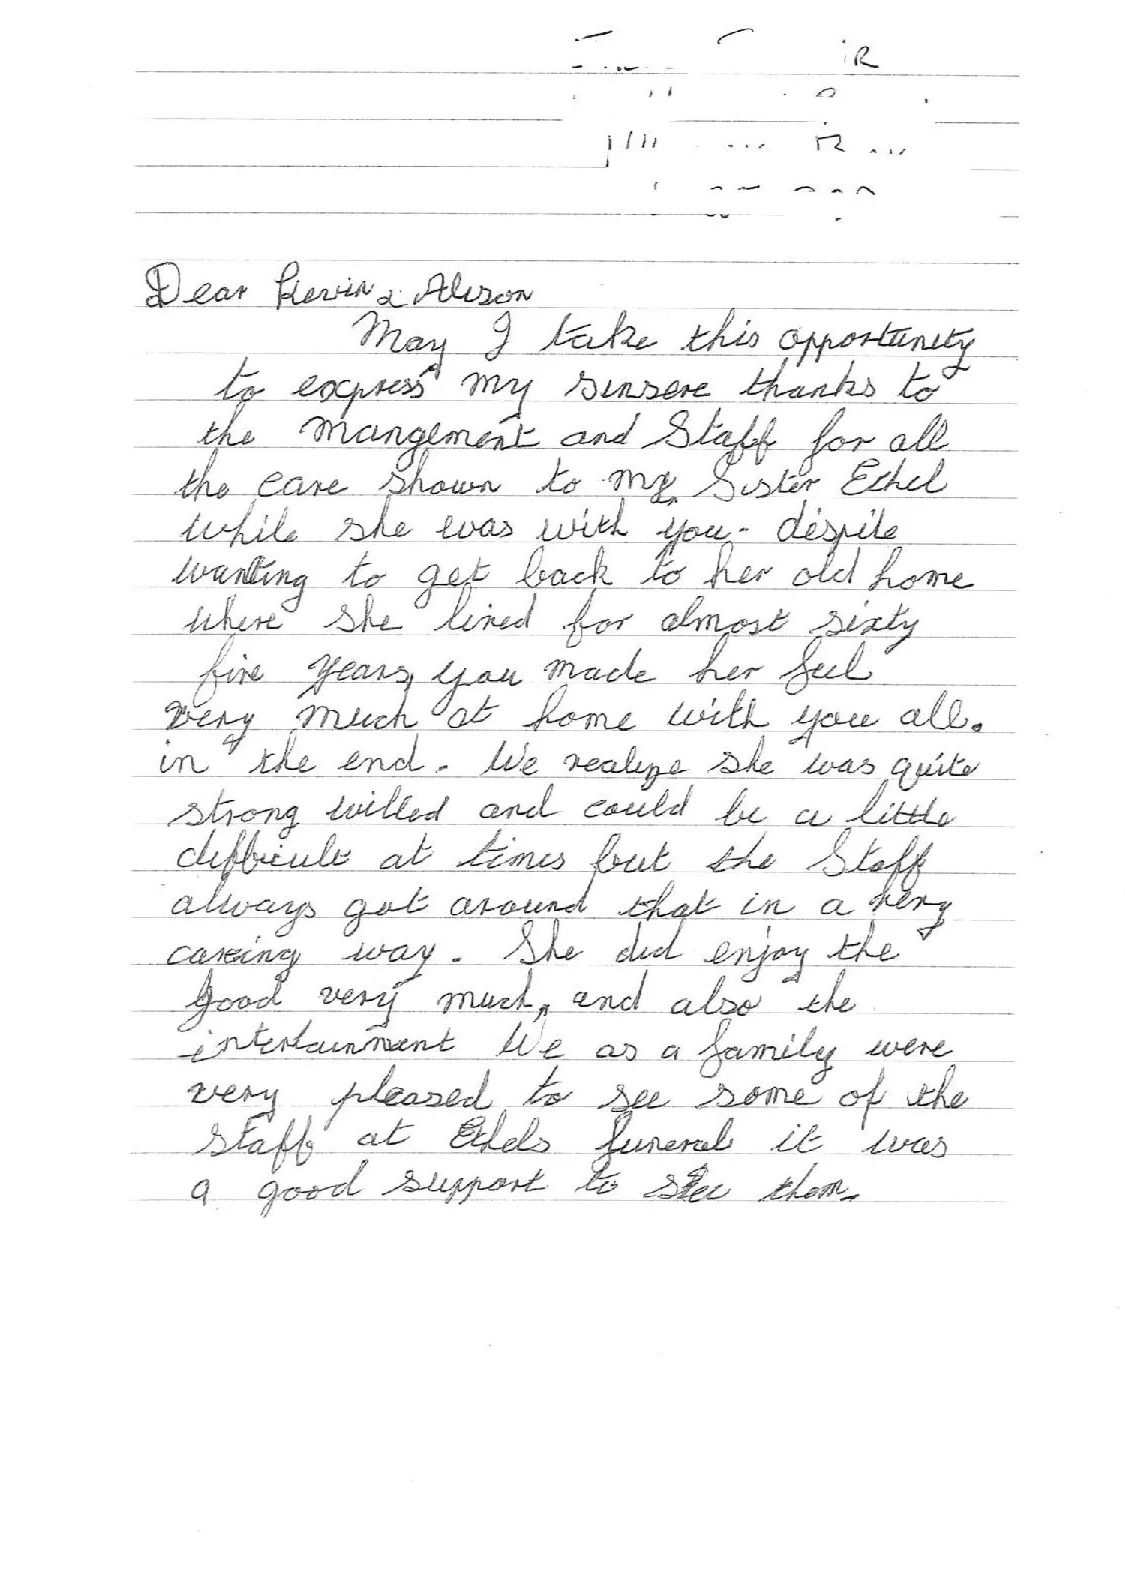 Dear Kevin & Alison
May I take this opportunity
to express my sinsere thanks to
the mangement and Staff for all
the care shown to my Sister Ethel
while she was with you. despite
wanting to get back to her old home
where she lived for almost sixty
five years, you made her feel
very much at home with you all.
in the end. We realize she was quite
strong willed and could be a little
difficult at times but the Staff
always got around that in a very
careing way. She did enjoy the
food very much, and also the
intertainment We as a family were
very pleased to see some of the
staff at Ethels funeral it was
a good support to see them.